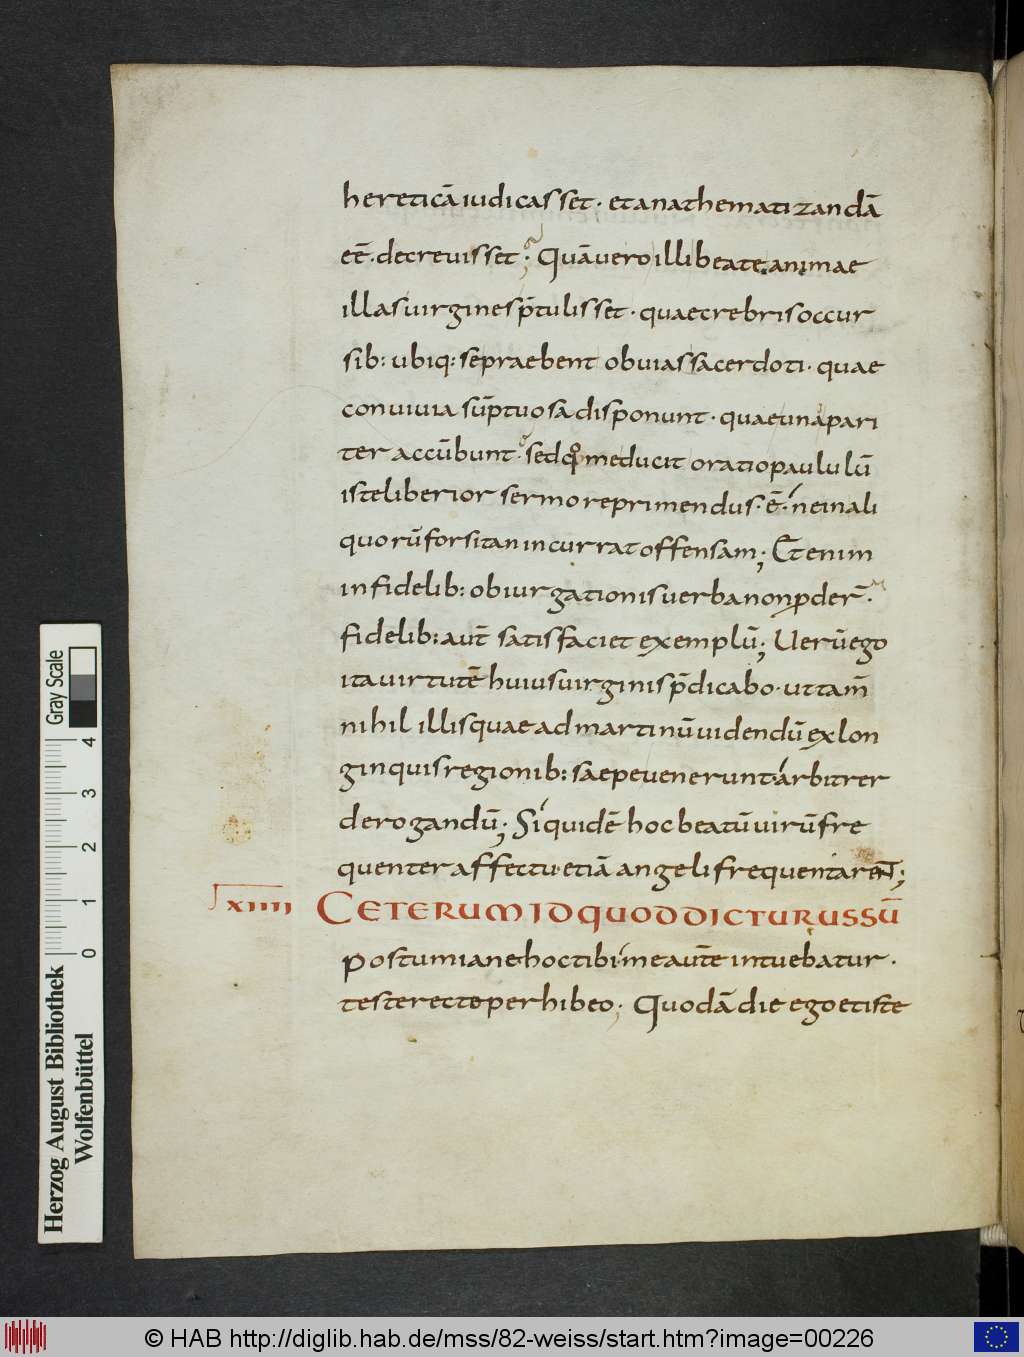 hereticā iudicasset· et anathematizandā
eē· decrevisset; Quā vero illi beate animae
illas virgines p̄tulisset· quae crebris occur
sib: ubiq: se praebent obvias sacerdoti· quae
convivia sūptuosa disponunt· quae una pari
ter accūbunt· sed qͦ me ducit oratio paululū
iste liberior sermo reprimendus· ē· ne in ali
quorū forsitan incurrat offensam; Etenim
infidelib: obiurgationis verba non ꝓder̄·
fidelib: aut̄ satisfaciet exemplū; Uerū ego
ita virtutē huius virginis p̄dicabo· ut tam̄
nihil illis quae ad martinū videndū ex lon
ginquis regionib: saepe venerunt· arbitrer
derogandū; Siquidē hoc beatū virū fre
quenter affectu· etiā angeli frequentarent;
xiiii CETERUM ID QUOD DICTURUS SŪ
postumiane hoc tibi· me aut̄e intuebatur·
teste recto perhibeo· Quodā die ego et iste
Herzog August Bibliothek
Wolfenbüttel
Gray Scale
0 1 2 3 4
© HAB http://diglib.hab.de/mss/82-weiss/start.htm?image=00226